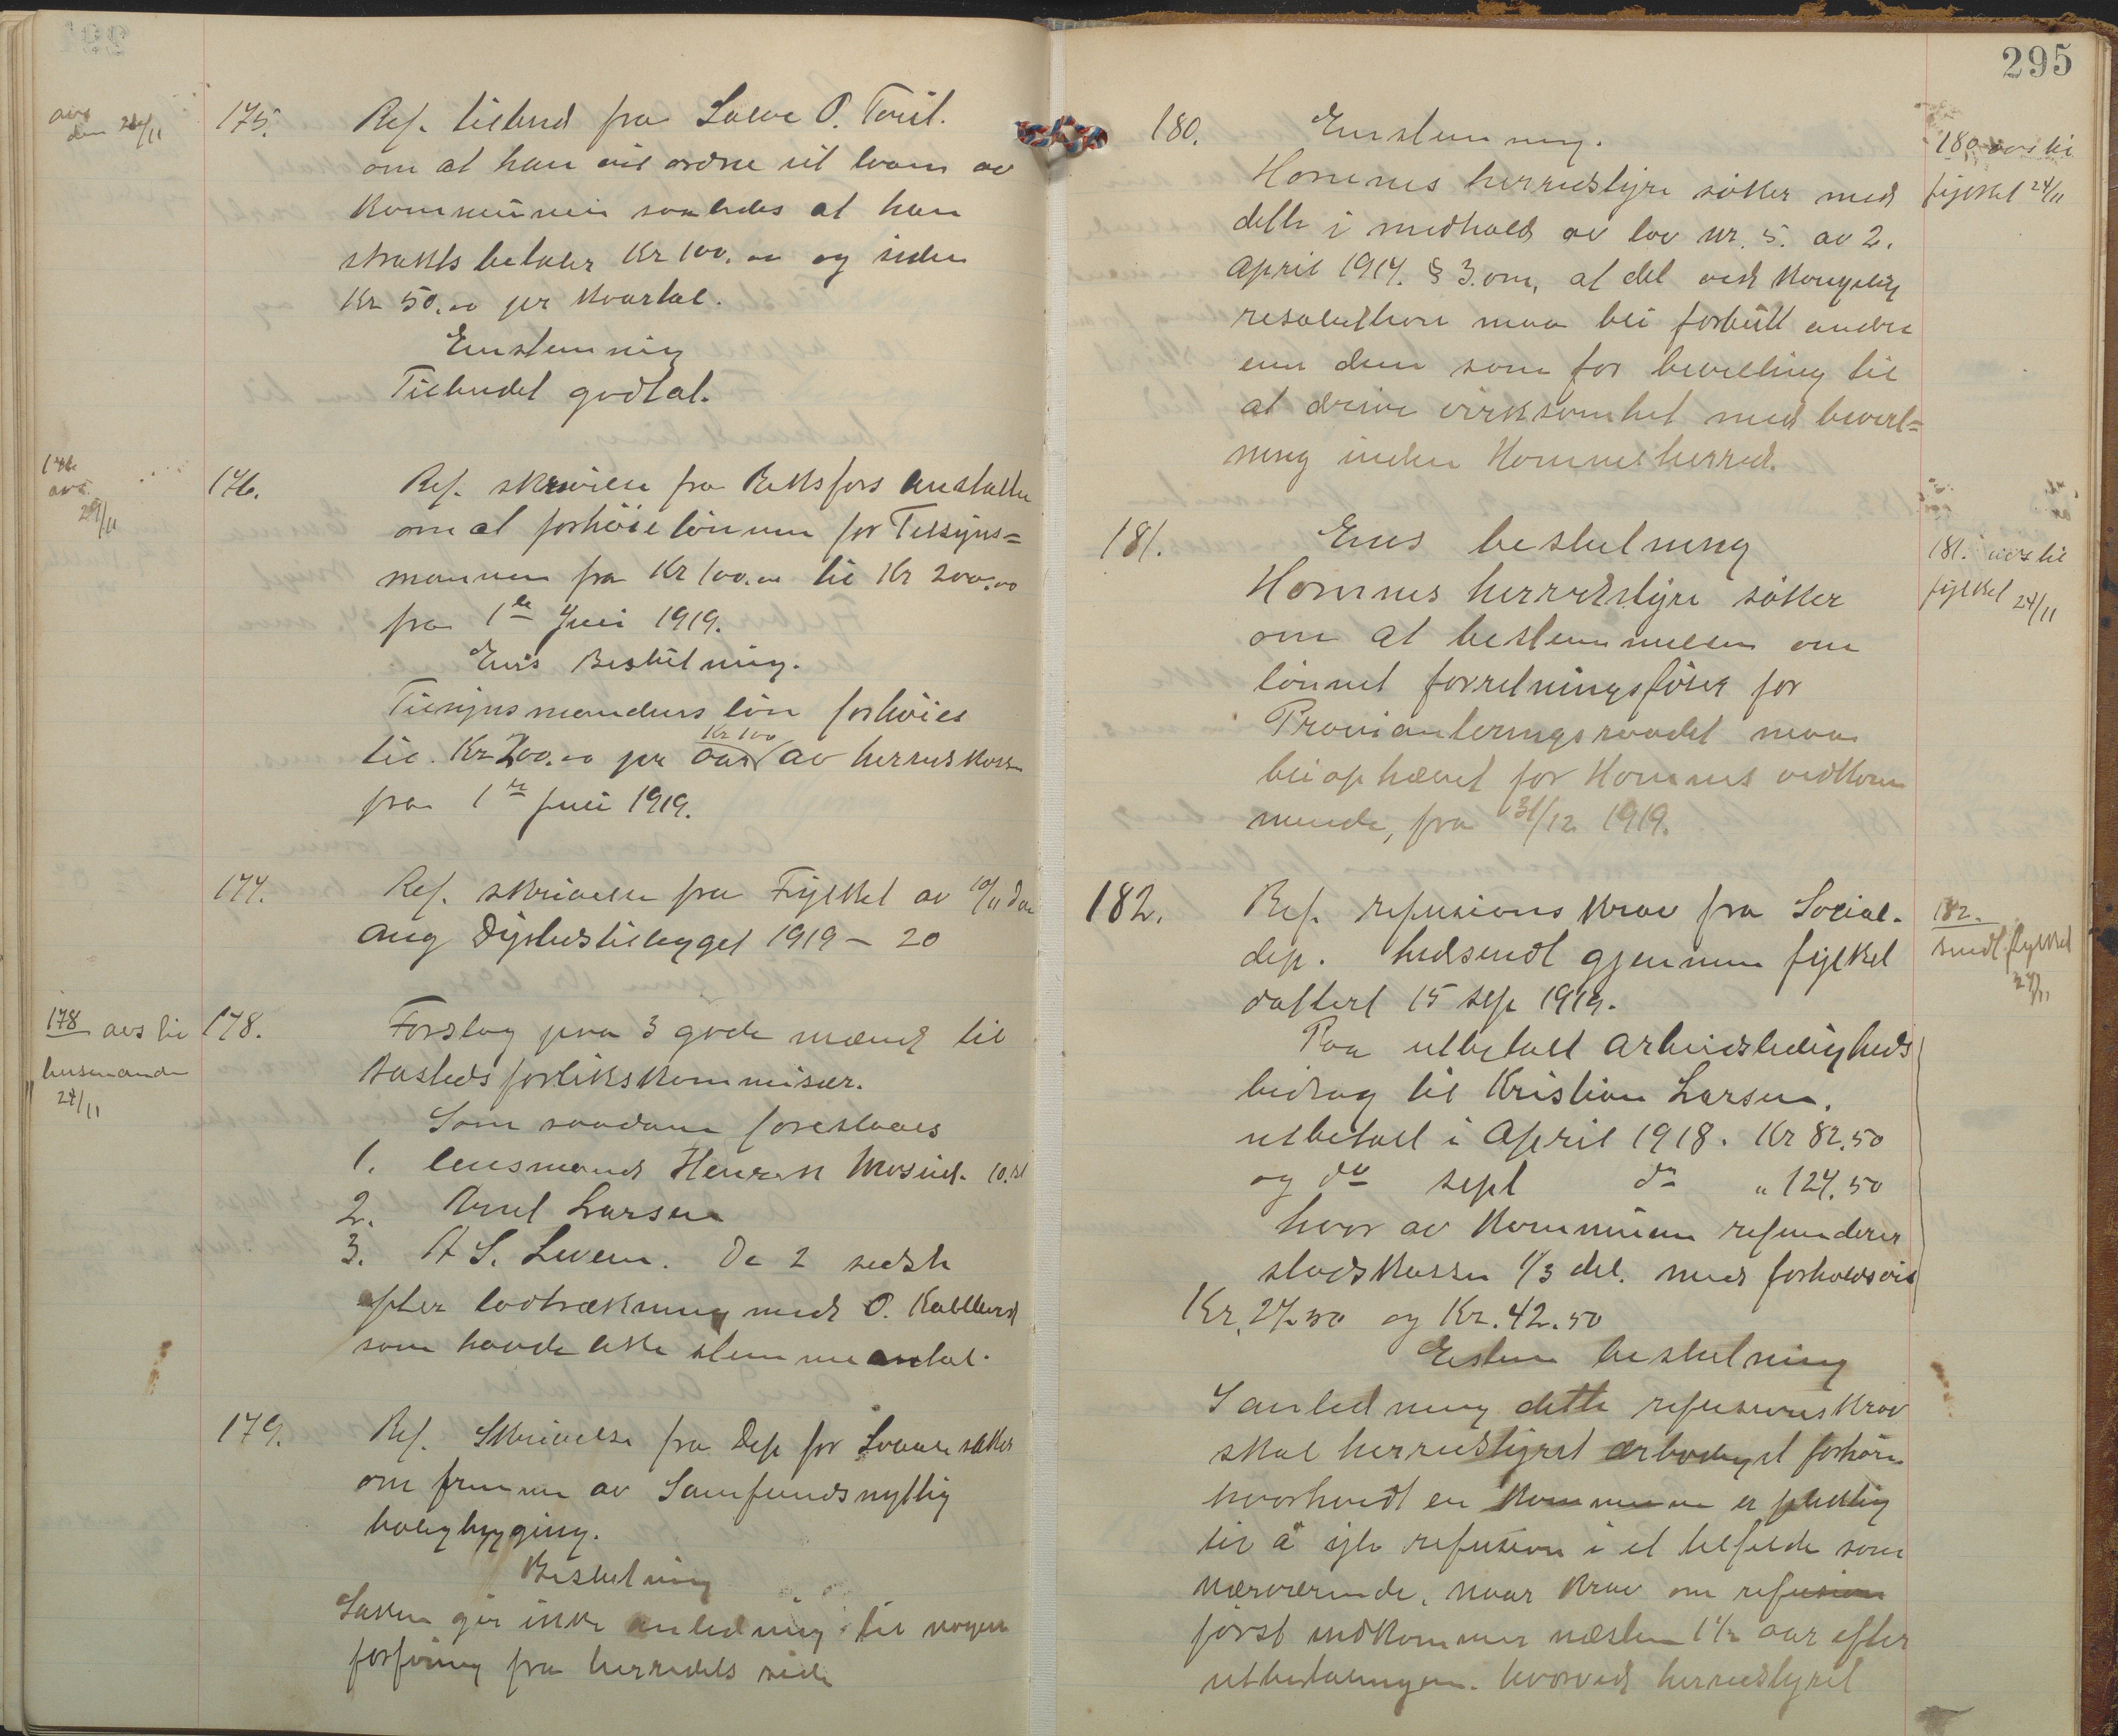 avs
den 24/11
175.
Ref. tilbud fra Salve O. Tveit.
om at han vil ordne sit laan av
Kommunen saaledes at han
strakts betaler Kr 100.00 og siden
Kr 50.00 pr Kvartal.
Enstemmig
Tilbudet godtat.
176
avs.
24/11
176.
Ref. skrivelse fra Reknsfors anstalten
om at forhöie lönnen for Tilsyns=
mannen fra Kr 100.00 til Kr 200.00
fra 1ste Juli 1919.
Ens Beslutning.
Tilsynsmandens lön forhöies
til Kr 200.00 pr aar Kr 100 av herredskassen
fra 1ste Juli 1919.
177.
Ref. skrivelse fra Fylket av 10/11 d.a.
ang Dyrtidstillegget 1919 – 20
178 avs til
lensmanden
24/11
178.
Forslag paa 3 gode mænd til
Aastedsforlikskommisær.
Som saadane foreslaaes
1. lensmand Henrik Mosvid. 10. st
2. Arnt Larsen
3. A S. Leveren. De 2 sidste
efter lodtrækning med O. Kalleberg
som havde likt stemmeantal.
179.
Ref. Skrivelse fra Dep for Sociale saker
om fremme av Samfundsnyttig
boligbygging.
Beslutning
Saken gir ikke anledning til nogen
forføining fra herredets side
295
180.
Enstemmig.
Hommes herredstyre söker med
dette i medhold av lov nr. 5. av 2.
April 1917. § 3. om, at det ved Kongelig
resolution maa bli forbutt andre
enn dem som for bevilling til
at drive virksomhet med bevert=
ning inden Hommes herred.
180 avs til
fylket 24/11
181.
Ens beslutning
Hommes herredstyre söker
om at bestemmelsen om
lönnet forretningsförer for
Provianteringsraadet maa
bli ophævet for Hommes vedkom
mende, fra 31/12 1919.
181. avs til
fylket 24/11
182.
Ref. refusions krav fra Social.
dep. tilsendt gjennem fylket
datert 15 sep 1919.
Paa utbetalt arbeidsledigheds
bidrag til Kristian Larsen.
utbetalt i April 1918. Kr 82.50
og do sept do " 127.50
hvor av Kommunen refunderer
statskassen 1/3 del. med forholdsvis
Kr. 27.50 og Kr. 42.50
Enstem beslutning
I anledning dette refusionskrav
skal herredstyret ærbødigst forhöre
hvorvidt en Kommune er pliktig
til å yte refusion i et tilfelde som
nærværende, naar krav om refusion
först indkommer næsten 1½ aar efter
utbetalingen. hvorved herredstyret
182.
sendt fylket
24/11